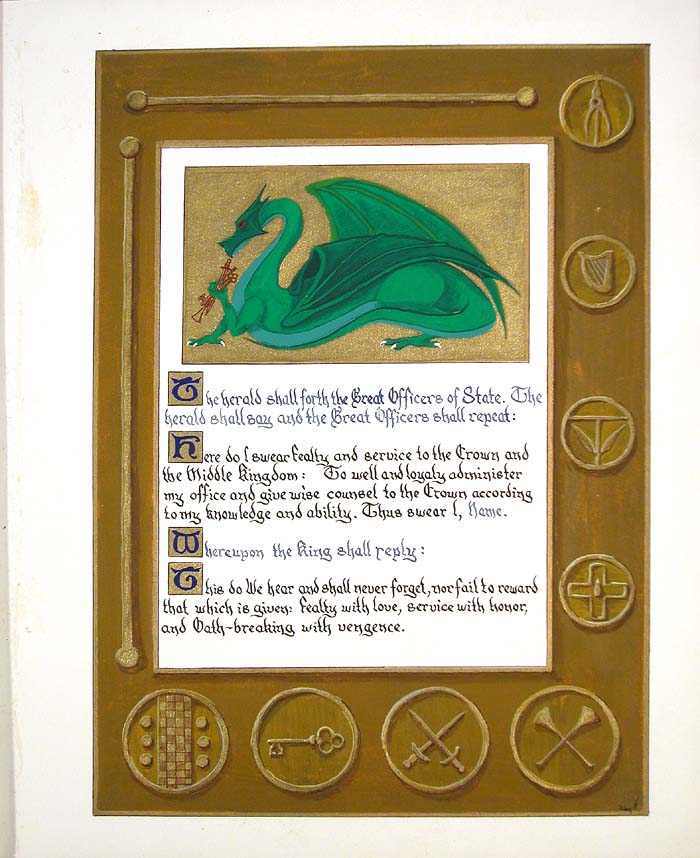 The herald shall forth the Great Officers of State. The
herald shall say and the Great Officers shall repeat:
Here do I swear fealty and service to the Crown and
the Middle Kingdom: To well and loyaly administer
my office and give wise counsel to the Crown according
to my knowledge and ability. Thus swear I, Name.
Whereupon the King shall reply:
This do We hear and shall never forget, nor fail to reward
that which is given: fealty with love, service with honor,
and Oath-breaking with vengence.